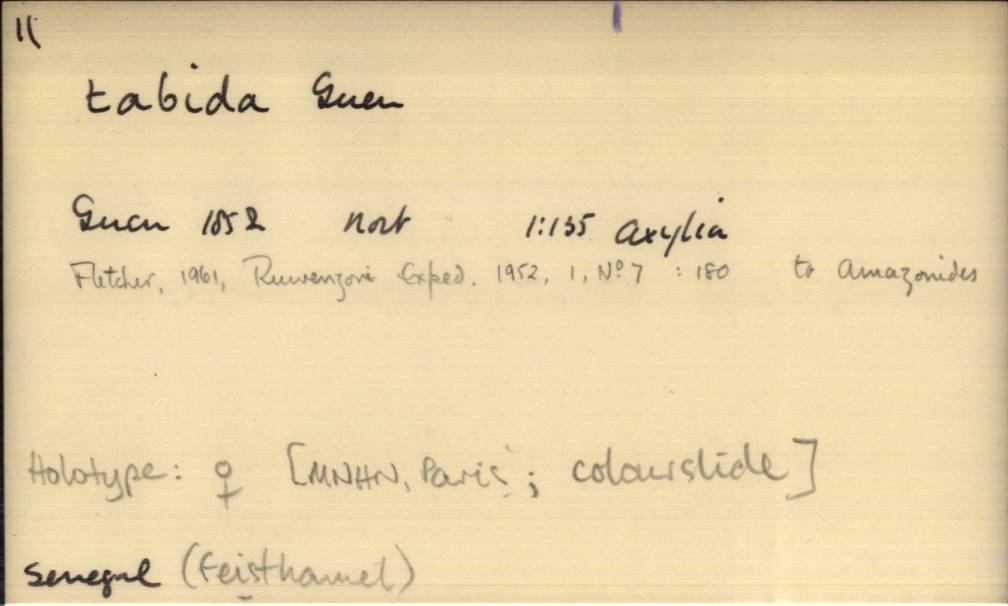 11
tabida Guen
Guen 1852 Noct 1:135 Axylia
Fletcher, 1961, Ruwenzori Exped. 1952, 1, Nº 7 : 180 to Amazonides
Holotype: ♀ [MNHN, Paris; colourslide]
Senegal (Feisthamel)